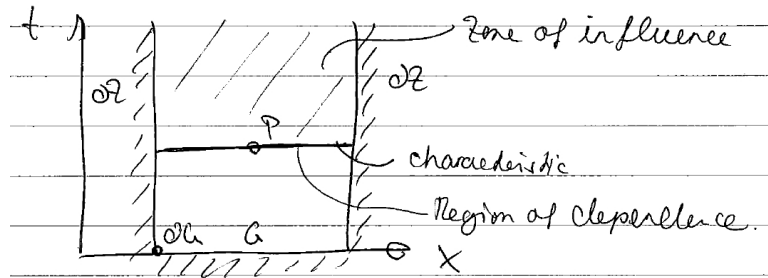 t
Zone of influence
∂Z
∂Z
P
characteristic
Region of dependence.
∂G
G
X